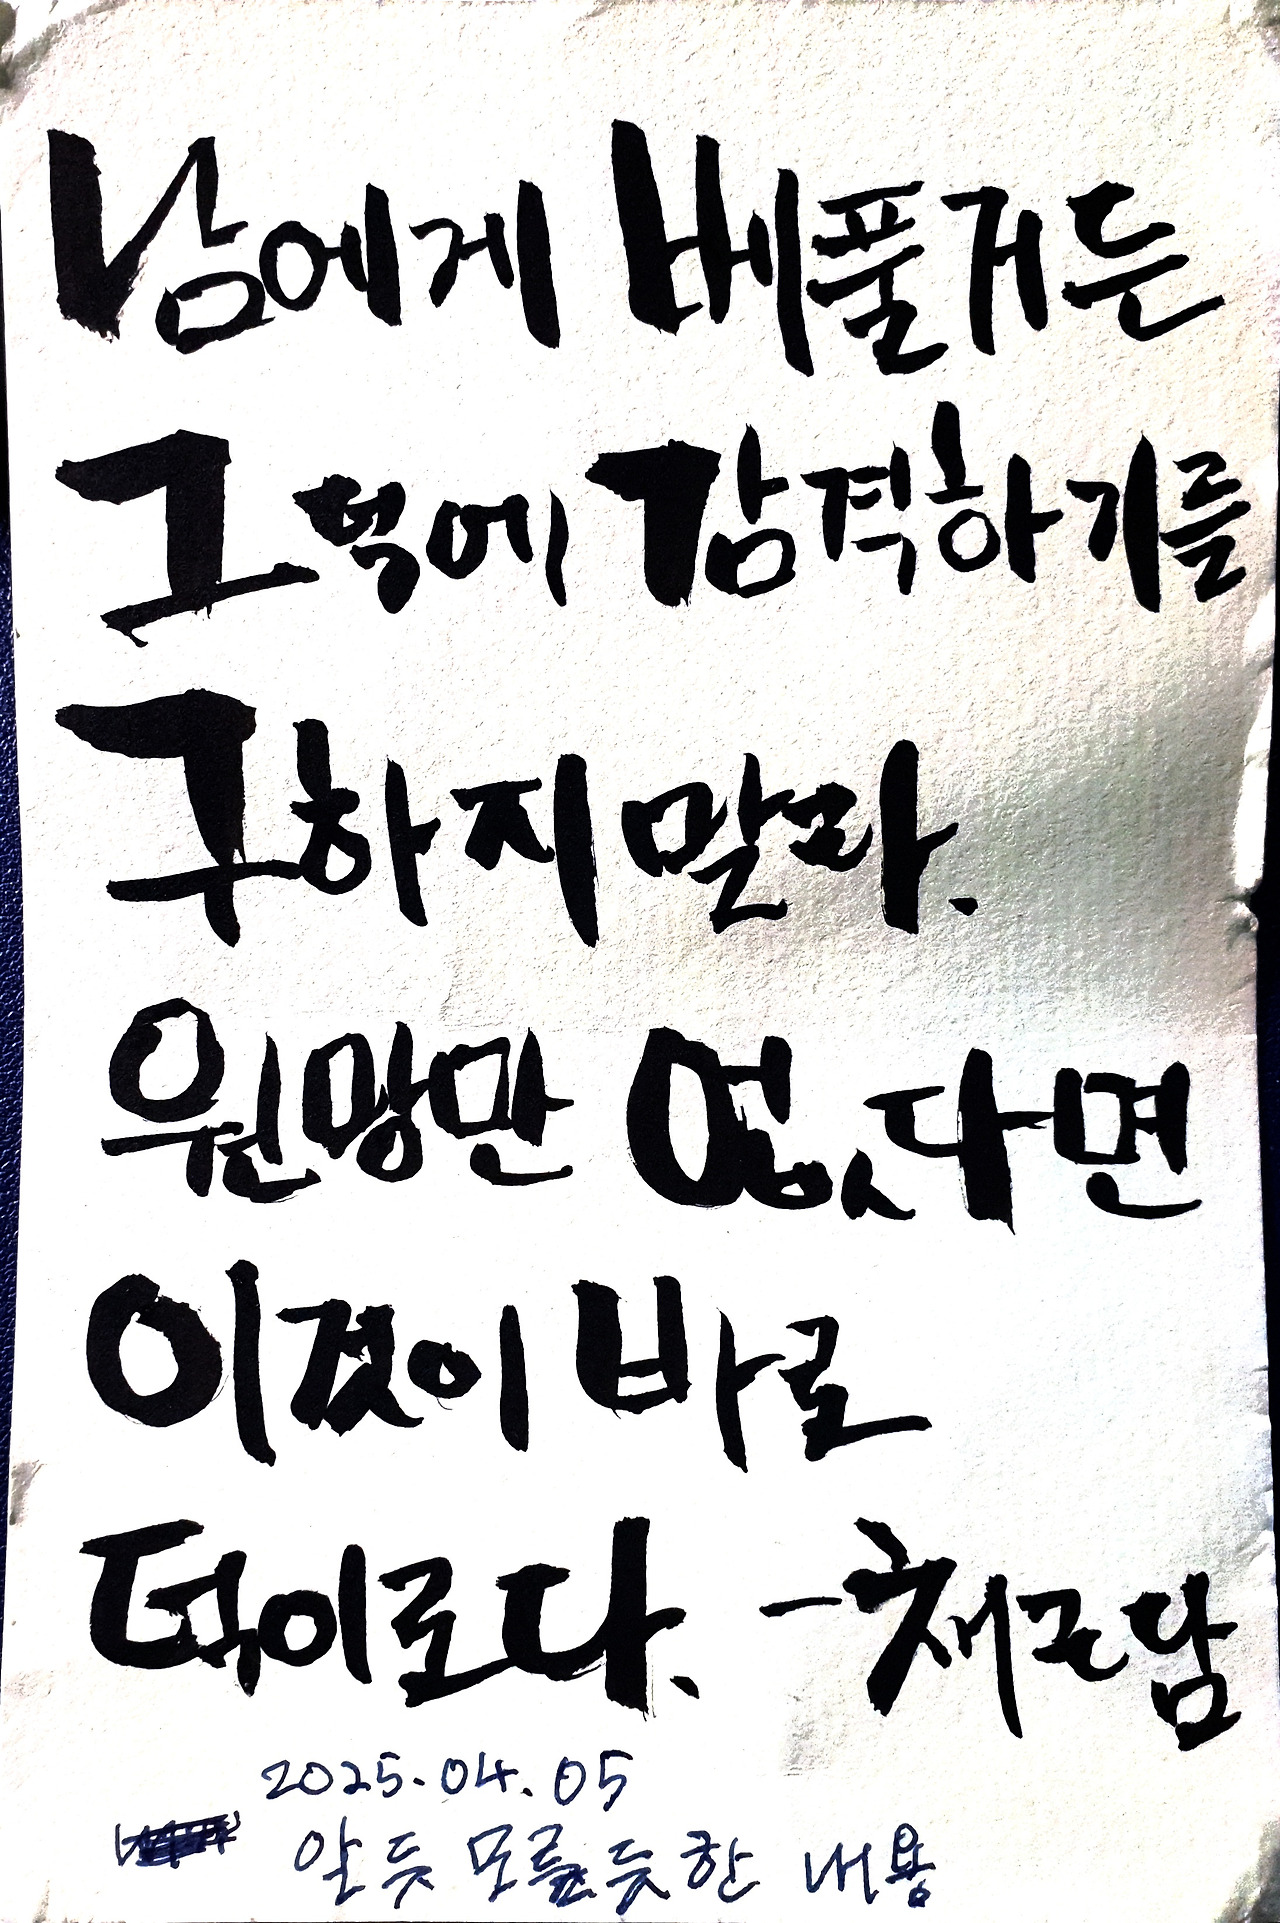 남에게 베풀거든
그 덕에 감격하기를
구하지 말라.
원망만 없다면
이것이 바로
덕이로다. -채근담
2025.04.05
알 듯 모를듯한 내용